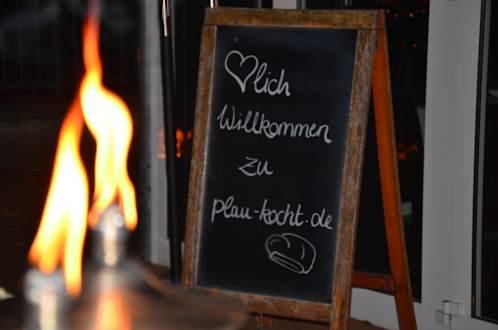 ♥lich
Willkommen
zu
plau-kocht.de